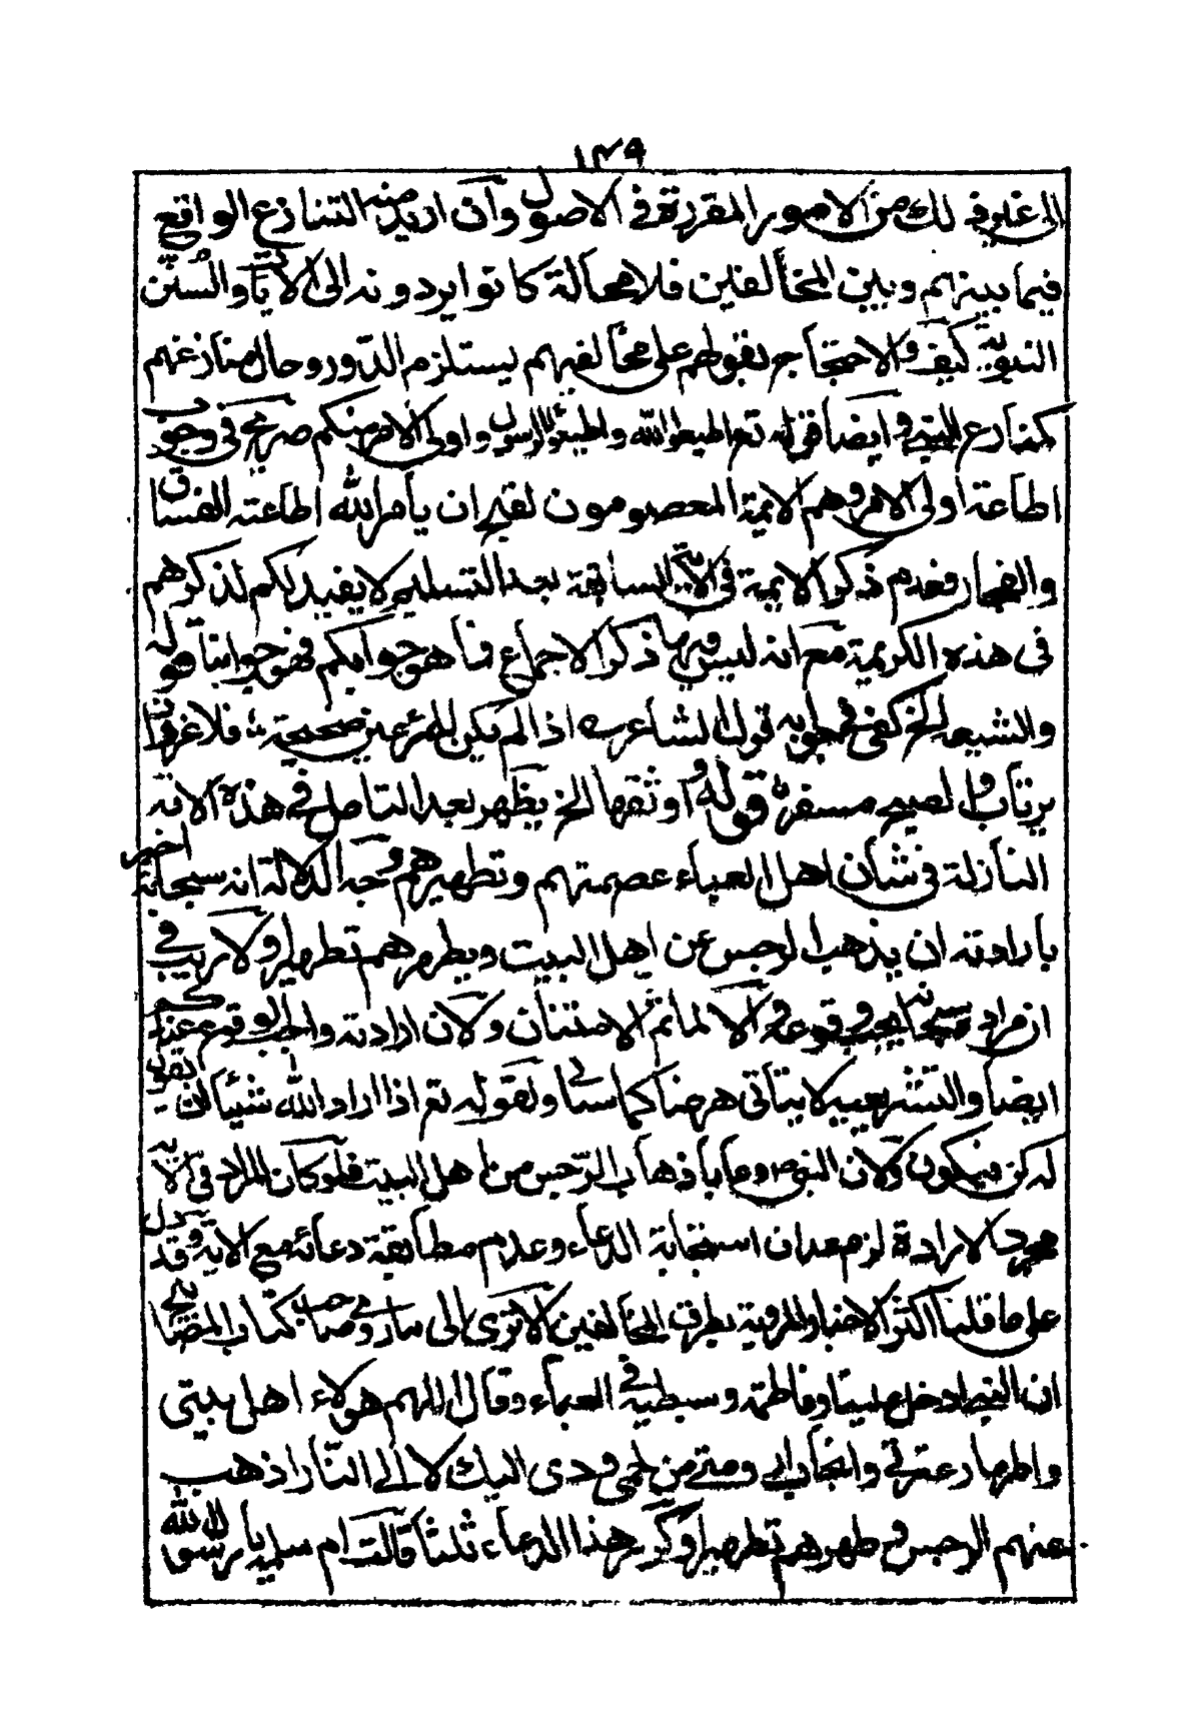 ١٣٩
الى غير ذلك من الامور المقررة في الاصول وان اريد منه التنازع الواقع
فيما بينهم وبين المخالفين فلا محالة كانوا يردونه الى الايات والسنن
النبوية كيف والاحتجاج بقولهم على مخالفيهم يستلزم الدور وحال منازعتهم
كمنازع النبي وايضا قوله تع اطيعوا الله واطيعوا الرسول واولى الامر منكم صريح في وجوب
اطاعة اولى الامر وهم الايمة المعصومون لقبح ان يأمر الله اطاعته الفساق
والفجار فعدم ذكر الايمة في الاية السابقة بعد التسليم لا يفيد لكم لذكرهم
في هذه الكريمة مع انه ليس فيها ذكر الاجماع فما هو جوابكم فهو جوابنا قوله
والشيعه الخ كفى في جوابه قول الشاعر اذا لم تكن للمرء عين صحيحة ؛ فلا غرو ان
يرتاب والصبح مسفر قوله واوثقها الخ يظهر بعد التامل في هذه الاية
النازلة في شأن اهل العباء عصمتهم وتطهيرهم وجه الدلالة انه سبحانه اخبر
بارادته ان يذهب الرجس عن اهل البيت ويطهرهم تطهيرا ولا ريب في
ان مراده سبحانه يجب وقوعه والا لما تم الامتنان ولان ارادته واجب الوقوع عندكم
ايضا والتشريعيه لا يتأتى ههنا كما سيأتي ولقوله تع اذا اراد الله شيئا ان يقول
له كن فيكون ولان النبي ص دعا باذهاب الرجس من اهل البيت فلو كان المراد في الاية
مجرد الارادة لزم فقدان استجابة الدعاء وعدم مطابقة دعائه مع الاية وقد يدل
على ما قلنا اكثر الاخبار المروية بطرق المخالفين الا ترى الى ما روى صاحب كتاب المصابيح
ان النبي ادخل عليا وفاطمة وسبطيه في العباء وقال اللهم هولاء اهل بيتي
واطهار عترتي وانجاب ارومتي من لحمي ودمى اليك لا الى النار اذهب
عنهم الرجس وطهرهم تطهيرا وكرر هذا الدعاء ثلثا قالت ام سلمه يا رسول الله